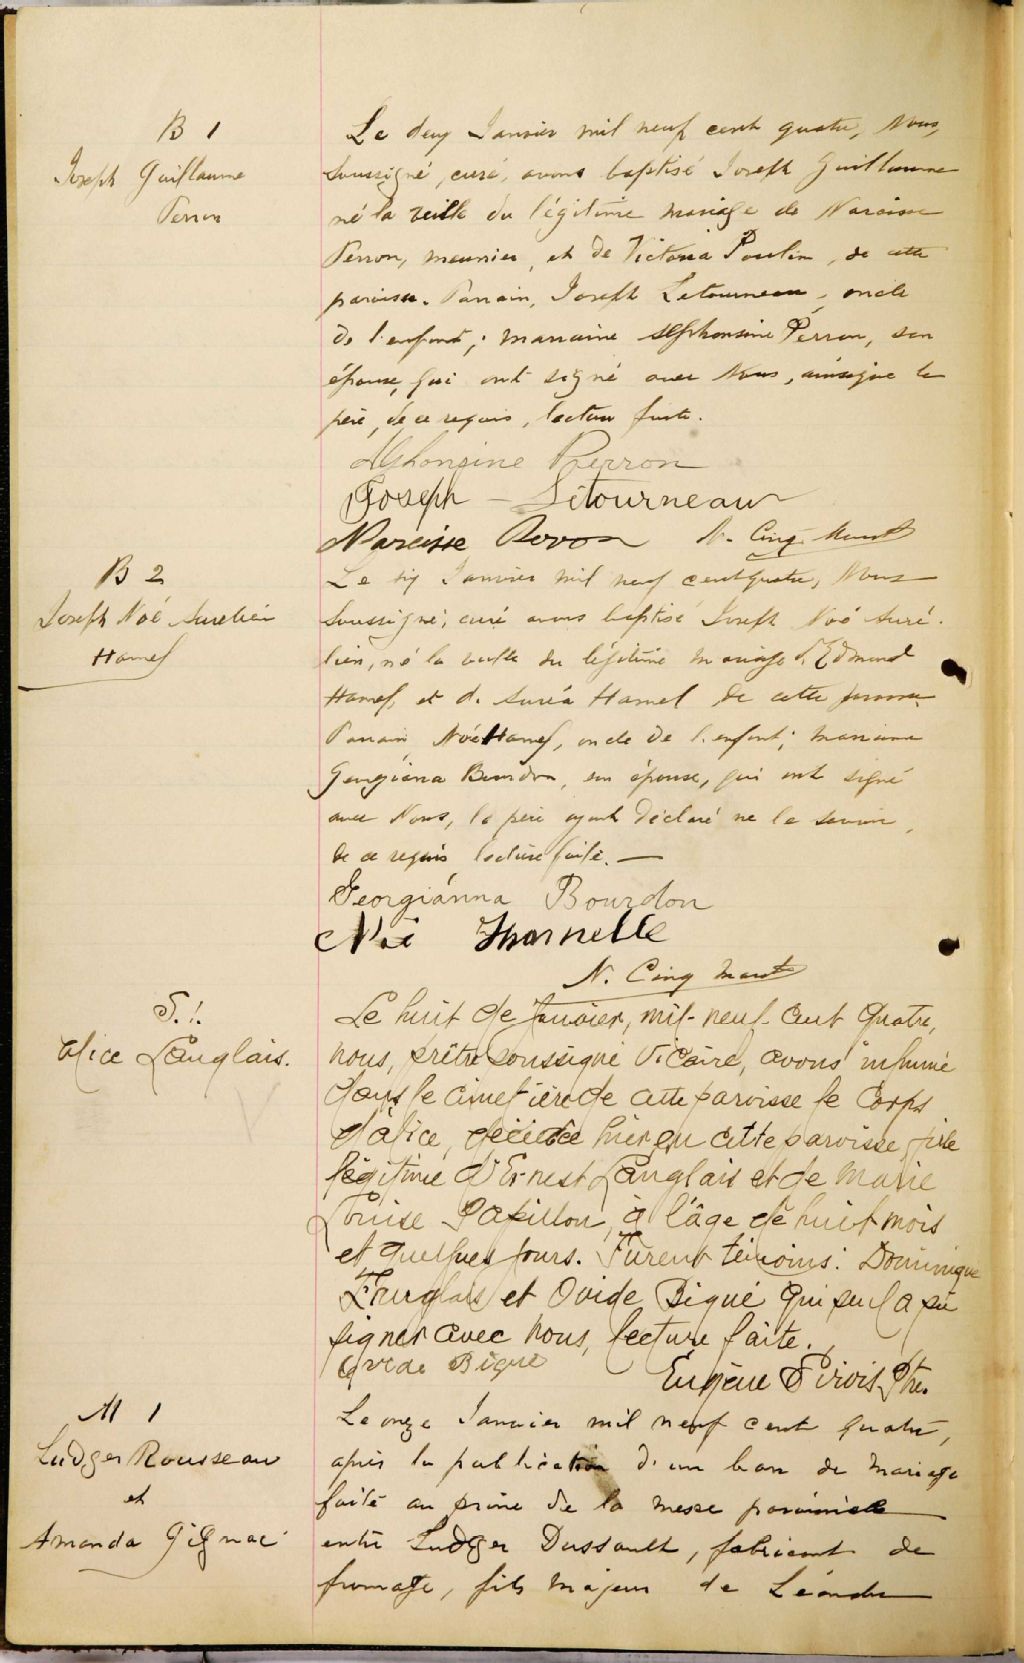 B 1
Joseph Guillaume
Perron
Le deux Janvier mil neuf cent quatre, Nous,
soussigné, curé, avons baptisé Joseph Guillaume
né la veille du légitime mariage de Narcisse
Perron, meunier, et de Victoria Poulin, de cette
paroisse. Parrain, Joseph Letourneau, oncle
de l'enfant; marraine Alphonsine Perron, son
épouse, qui ont signé avec Nous, ainsique le
père, de ce requis, lecture faite.
Alphonsine Perron
Joseph - Létourneau
Narcisse N. Cinq-Mars
B 2
Joseph Noé Aurélien
Hamel
Le six Janvier mil neuf cent quatre, Nous
soussigné, curé avons baptisé Joseph Noé Auré-
lien, né la veille du légitime mariage d'Edmond
Hamel, et de Auréa Hamel de cette paroisse.
Parrain, Noé Hamel, oncle de l'enfant; marraine
Georgiana Bourdon, son épouse, qui ont signé
avec Nous, le père ayant déclaré ne le savoir,
de ce requis lecture faite. —
Georgiánna Bourdon
Noé Hamelle
N. Cinq Mars
S. 1.
Alice Langlais.
Le huit de Janvier, mil-neuf-cent quatre,
nous, prêtre soussigné Vicaire, avons inhumé
dans le cimetière de cette paroisse le corps
d'Alice, décédée hier en cette paroisse, fille
légitime d'Ernest Langlais et de Marie
Louise Papillon, à l'âge de huit mois
et quelques jours. Furent témoins: Dominique
Langlais et Ovide Bigué qui seul a pu
signer avec nous, lecture faite.
Ovide Bigué
Eugène Ptre.
M 1
Ludger Rousseau
et
Amanda Gignac
Le onze Janvier mil neuf cent quatre,
après la publication d'un ban de mariage
faite au prône de la messe paroissiale
entre Ludger Dussault, fabricant de
fromage, fils majeur de Léandre